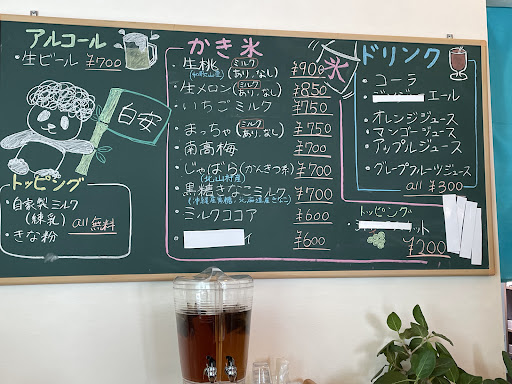 アルコール
・生ビール ¥700
白安
トッピング
・自家製ミルク
(練乳)
all 無料
・きな粉
かき氷
・生桃(ミルクあり,なし) ¥900
(和歌山産)
・生メロン(ミルクあり,なし) ¥850
・いちごミルク ¥750
・まっちゃ(ミルクあり,なし) ¥750
・南高梅 ¥700
・じゃばら(かんきつ系) ¥700
(北山村産)
・黒糖きなこミルク ¥700
(沖縄産黒糖,北海道産きなこ)
・ミルクココア ¥600
¥600
氷
ドリンク
・コーラ
エール
・オレンジジュース
・マンゴージュース
・アップルジュース
・グレープフルーツジュース
all ¥300
トッピング
ット
¥200